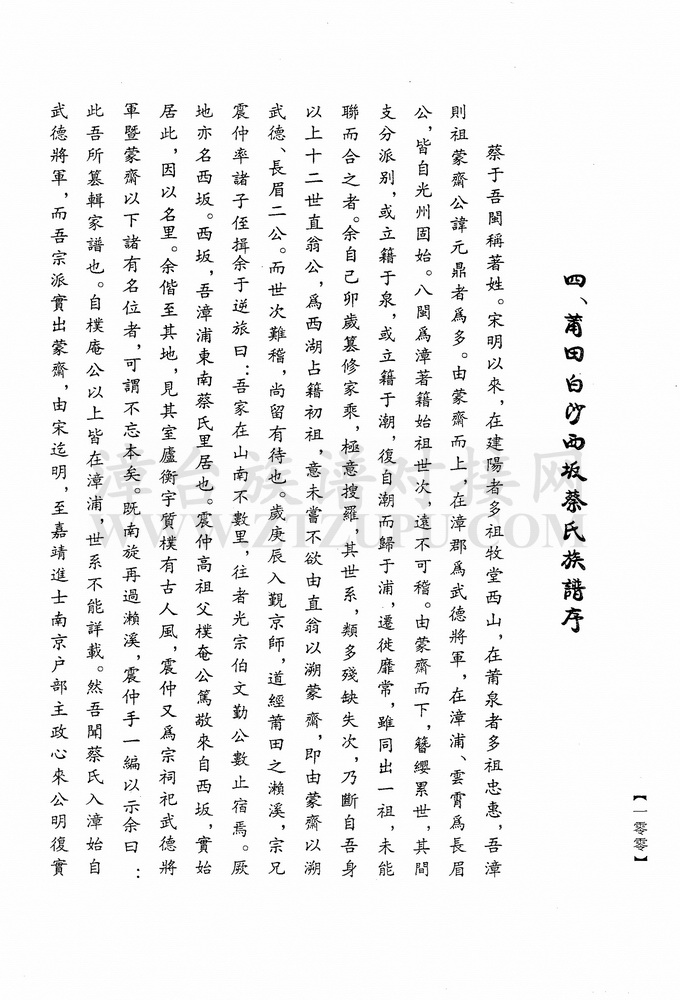 四、莆田白沙西坂蔡氏族譜序
蔡于吾閩稱著姓。宋明以來，在建陽者多祖牧堂西山，在莆泉者多祖忠惠，吾漳
則祖蒙齋公諱元鼎者爲多。由蒙齋而上，在漳郡爲武德將軍，在漳浦、雲霄爲長眉
公，皆自光州固始。八閩爲漳著籍始祖世次，遠不可稽。由蒙齋而下，簪纓累世，其間
支分派別，或立籍于泉，或立籍于潮，復自潮而歸于浦，遷徙靡常，雖同出一祖，未能
聯而合之者。余自己卯歲篡修家乘，極意搜羅，其世系，類多殘缺失次，乃斷自吾身
以上十二世直翁公，爲西湖占籍初祖，意未嘗不欲由直翁以溯蒙齋，即由蒙齋以溯
武德、長眉二公。而世次難稽，尚留有待也。歲庚辰入覲京師，道經莆田之瀨溪，宗兄
震仲率諸子侄揖余于逆旅曰：吾家在山南不數里，往者光宗伯文勤公數止宿焉。厥
地亦名西坂。西坂，吾漳浦東南蔡氏里居也。震仲高祖父樸奄公篤敬來自西坂，實始
居此，因以名里。余偕至其地，見其室廬衡宇質樸有古人風，震仲又爲宗祠祀武德將
軍暨蒙齋以下諸有名位者，可謂不忘本矣。既南旋再過瀨溪，震仲手一編以示余曰：
此吾所篡輯家譜也。自樸庵公以上皆在漳浦，世系不能詳載。然吾聞蔡氏入漳始自
武德將軍，而吾宗派實出蒙齋，由宋迄明，至嘉靖進士南京户部主政心來公明復實
【一零零】
漳台族譜对接网
WWW.ZTZUPU.COM